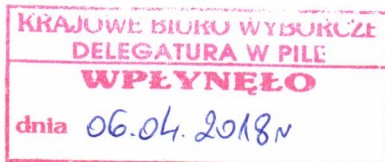 KRAJOWE BIURO WYBORCZE
DELEGATURA W PILE
WPŁYNĘŁO
dnia 06.04.2018r